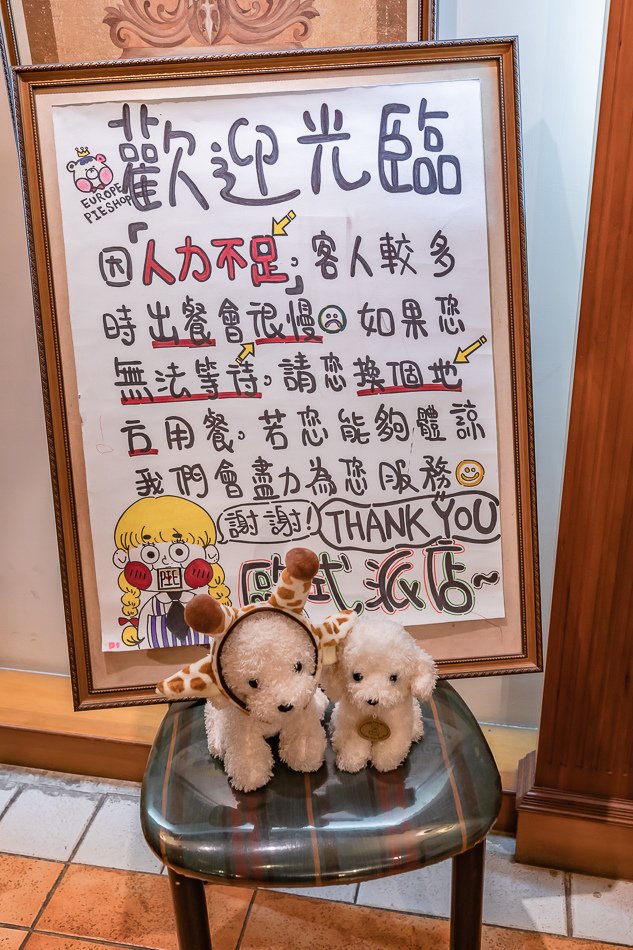 歡迎光臨
EUROPE
PIESHOP
因「人力不足」，客人較多
時出餐會很慢 如果您
無法等待，請您換個地
方用餐，若您能夠體諒
我們會盡力為您服務
謝謝! THANK YOU
PIE
歐式派店~